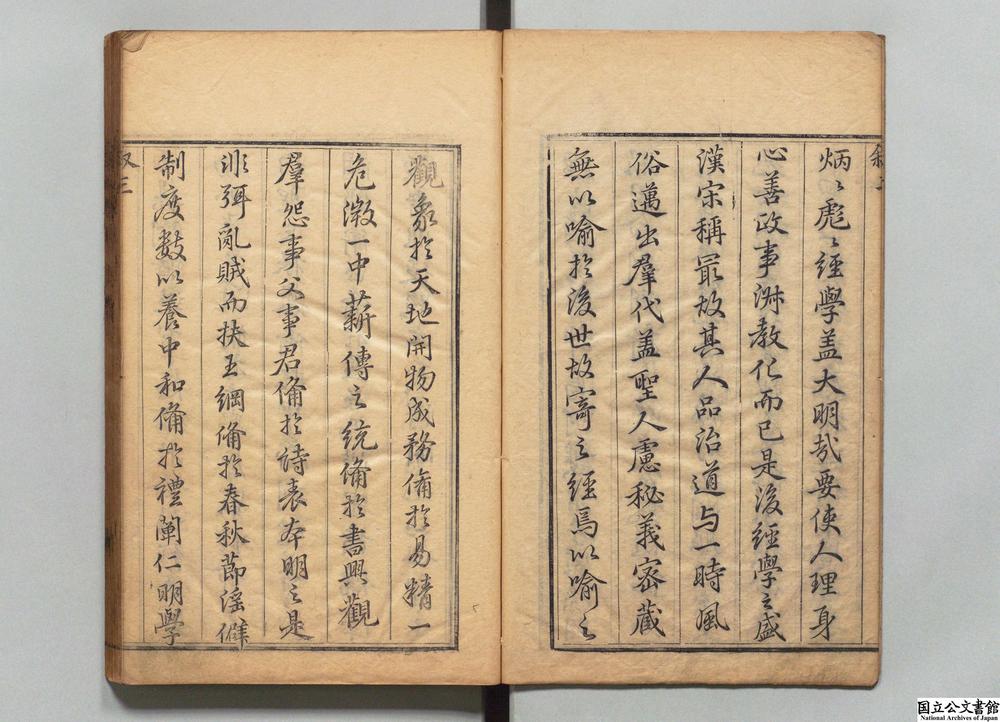 炳〻彪〻經學盖大明哉要使人理身
心善政事淑教化而已是後經學之盛
漢宋稱最故其人品治道与一時風
俗邁出羣代盖聖人慮秘義密藏
無以喻於後世故寄之經焉以喻之
觀象於天地開物成務備於易精一
危微一中薪傳之統備於書興觀
羣怨事父事君備於詩表本明之是
非弭亂賊而扶王綱備於春秋節淫僻
制度數以養中和備於禮闡仁明學
叙三
国立公文書館
National Archives of Japan